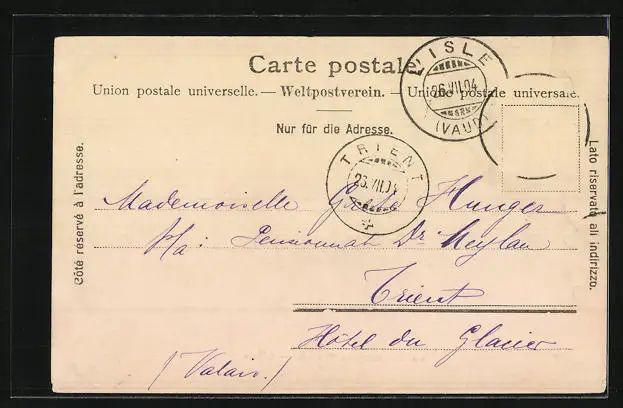 Carte postale.
Union postale universelle. — Weltpostverein. — Unione postale universale.
Nur für die Adresse.
Côté réservé à l'adresse.
Lato riservato all indirizzo.
L'ISLE
26.VII.04
(VAUD)
TRIENT
26.VII.04
Mademoiselle
p/a: Pensionnat Dr Meylan
Trient
Hôtel du Glacier
(Valais.)